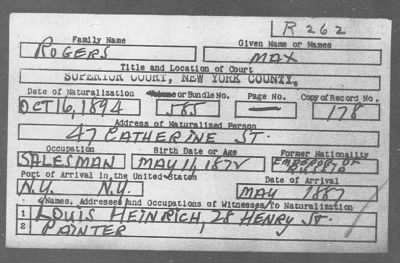 R 262
Family Name Given Name or Names
ROGERS MAX
Title and Location of Court
SUPERIOR COURT, NEW YORK COUNTY.
Date of Naturalization Volume or Bundle No. Page No. Copy of Record No.
OCT 16, 1894 585 — 178
Address of Naturalized Person
47 CATHERINE ST.
Occupation Birth Date or Age Former Nationality
SALESMAN MAY 14 1872 EMPEROR OF RUSSIA
Port of Arrival in the United States Date of Arrival
N.Y. N.Y. MAY 1887
Names, Addresses and Occupations of Witnesses To Naturalization
1 LOUIS HEINRICH, 28 HENRY ST.
2 PAINTER